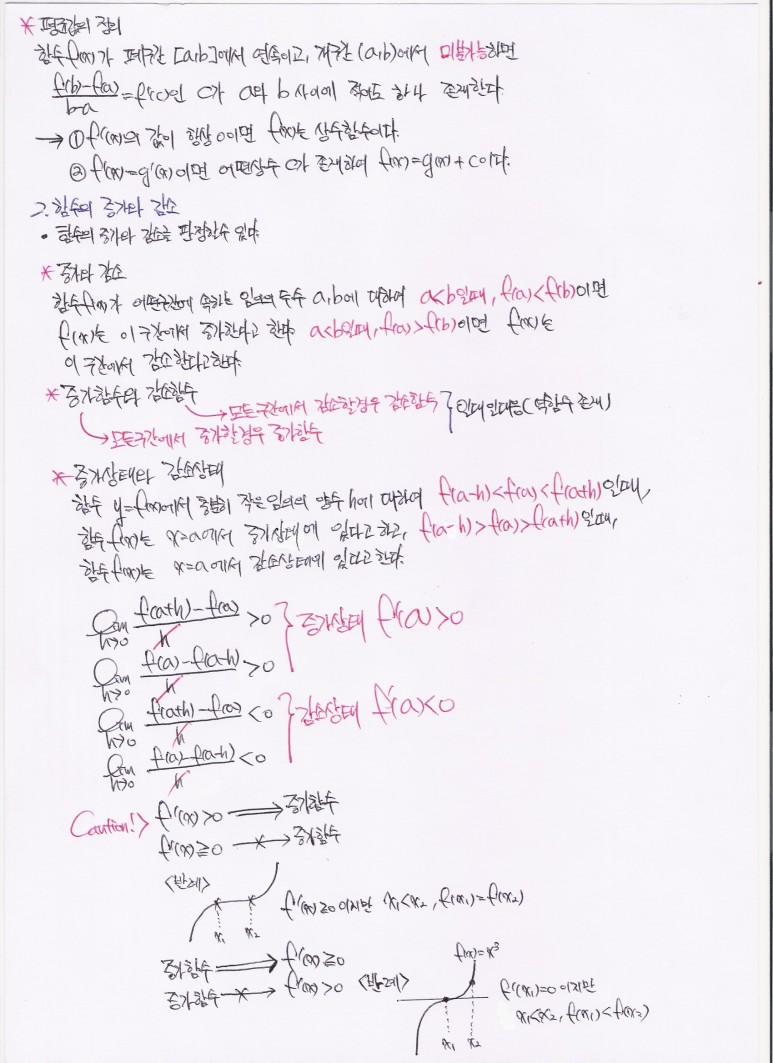 * 평균값의 정리
함수 f(x)가 폐구간 [a,b]에서 연속이고, 개구간 (a,b)에서 미분가능하면
f(b)-f(a)/b-a = f'(c)인 c가 a와 b 사이에 적어도 하나 존재한다
→ ① f'(x)의 값이 항상 0이면 f(x)는 상수함수이다.
② f'(x)=g'(x)이면 어떤상수 c가 존재하여 f(x)=g(x)+c이다.
2. 함수의 증가와 감소
• 함수의 증가와 감소를 판정할수 있다
* 증가와 감소
함수 f(x)가 어떤구간에 속하는 임의의 두수 a,b에 대하여 a<b일때, f(a)<f(b)이면
f(x)는 이 구간에서 증가한다고 한다 a<b일때, f(a)>f(b)이면 f(x)는
이 구간에서 감소한다고한다.
* 증가함수와 감소함수
→모든구간에서 감소할경우 감소함수 } 일대일대응(역함수 존재)
→모든구간에서 증가할경우 증가함수
* 증가상태와 감소상태
함수 y=f(x)에서 충분히 작은 임의의 양수 h에 대하여 f(a-h)<f(a)<f(a+h)일때,
함수 f(x)는 x=a에서 증가상태에 있다고 하고, f(a-h)>f(a)>f(a+h)일때,
함수 f(x)는 x=a에서 감소상태에 있다고 한다.
lim h→0 f(a+h)-f(a)/h >0 } 증가상태 f'(a)>0
lim h→0 f(a)-f(a-h)/h >0
lim h→0 f(a+h)-f(a)/h <0 } 감소상태 f'(a)<0
lim h→0 f(a)-f(a-h)/h <0
Caution!> f'(x)>0 ⟹ 증가함수
f'(x)≧0 —×→ 증가함수
<반례>
f'(x)≥0 이지만 x₁<x₂, f(x₁)=f(x₂)
x₁ x₂
증가함수 ⟹ f'(x)≧0
증가함수 —×→ f'(x)>0 <반례>
f(x)=x³
f'(x₁)=0 이지만
x₁<x₂, f(x₁)<f(x₂)
x₁ x₂